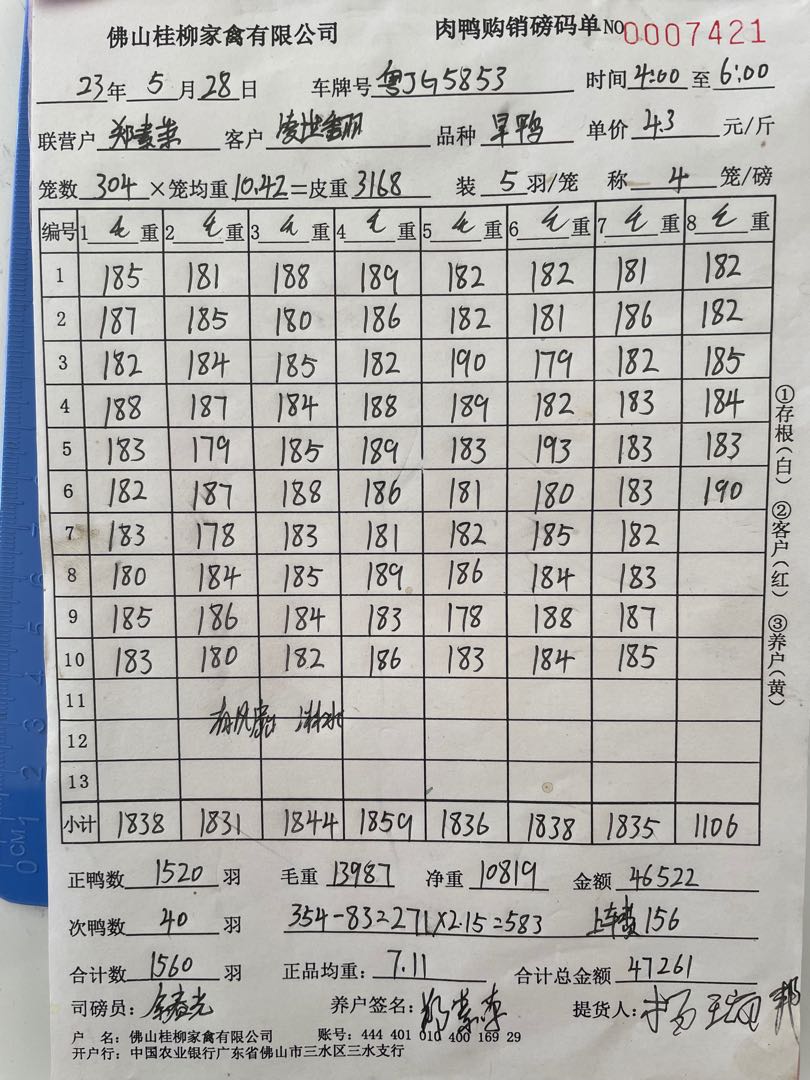 佛山桂柳家禽有限公司 肉鸭购销磅码单 NO 0007421
23年 5月 28日 车牌号 粤JG5853 时间 4:00 至 6:00
联营户 客户 品种 旱鸭 单价 4.3 元/斤
笼数 304 ×笼均重 10.42 =皮重 3168 装 5 羽/笼 称 4 笼/磅
编号 1 毛 重 2 毛 重 3 毛 重 4 毛 重 5 毛 重 6 毛 重 7 毛 重 8 毛 重
1 185 181 188 189 182 182 181 182
2 187 185 180 186 182 181 186 182
3 182 184 185 182 190 179 182 185
4 188 187 184 188 189 182 183 184
5 183 179 185 189 183 193 183 183
6 182 187 188 186 181 180 183 190
7 183 178 183 181 182 185 182
8 180 184 185 189 186 184 183
9 185 186 184 183 178 188 187
10 183 180 182 186 183 184 185
11
12
13
小计 1838 1831 1844 1859 1836 1838 1835 1106
正鸭数 1520 羽 毛重 13987 净重 10819 金额 46522
次鸭数 40 羽 354-83=271×2.15=583 上车费 156
合计数 1560 羽 正品均重: 7.11 合计总金额 47261
司磅员: 养户签名: 提货人:
户 名: 佛山桂柳家禽有限公司 账号: 444 401 010 400 169 29
开户行: 中国农业银行广东省佛山市三水区三水支行
①存根(白) ②客户(红) ③养户(黄)